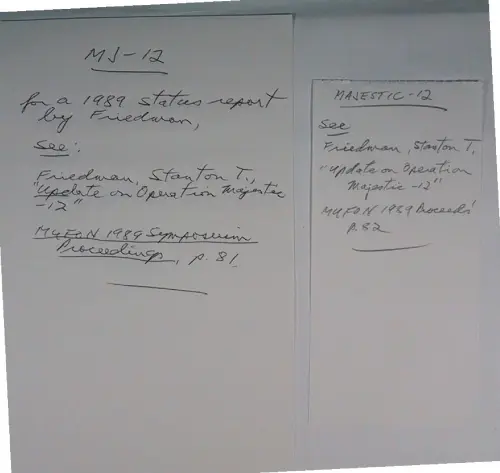 MJ-12
for a 1989 status report
by Friedman,
See:
Friedman, Stanton T.,
"Update on Operation Majestic
-12"
MUFON 1989 Symposium
Proceedings, p. 81
MAJESTIC-12
See
Friedman, Stanton T,
"Update on Operation
Majestic-12"
MUFON 1989 Proceeds'
p. 82